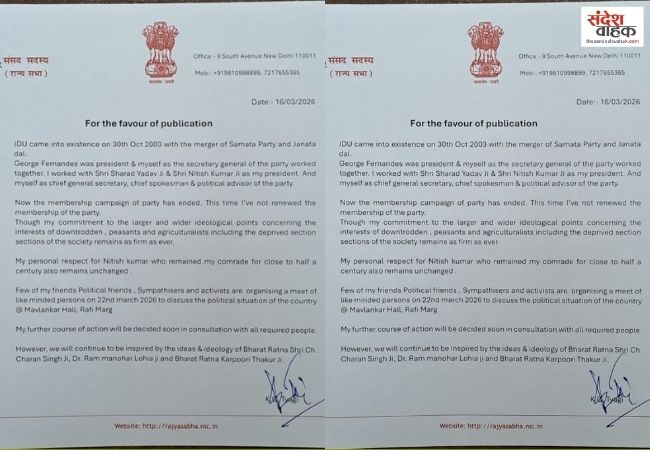 संसद सदस्य
( राज्य सभा )
सत्यमेव जयते
Office:- 9 South Avenue New Delhi 110011
Mob:- +919810998899, 7217655365
Date:- 16/03/2026
For the favour of publication
JDU came into existence on 30th Oct 2003 with the merger of Samata Party and Janata
dal.
George Fernandes was president & myself as the secretary general of the party worked
together. I worked with Shri Sharad Yadav Ji & Shri Nitish Kumar Ji as my president. And
myself as chief general secretary, chief spokesman & political advisor of the party.
Now the membership campaign of party has ended. This time I've not renewed the
membership of the party.
Though my commitment to the larger and wider ideological points concerning the
interests of downtrodden , peasants and agriculturalists including the deprived section
sections of the society remains as firm as ever.
My personal respect for Nitish kumar who remained my comrade for close to half a
century also remains unchanged .
Few of my friends Political friends , Sympathisers and activists are organising a meet of
like minded persons on 22nd march 2026 to discuss the political situation of the country
@ Mavlankar Hall, Rafi Marg
My further course of action will be decided soon in consultation with all required people.
However, we will continue to be inspired by the ideas & ideology of Bharat Ratna Shri Ch.
Charan Singh Ji, Dr. Ram manohar Lohia ji and Bharat Ratna Karpoori Thakur Ji.
Website: http://rajyasabha.nic.in
संदेश
वाहक
thesandeshwahak.com
संसद सदस्य
( राज्य सभा )
सत्यमेव जयते
Office:- 9 South Avenue New Delhi 110011
Mob:- +919810998899, 7217655365
Date:- 16/03/2026
For the favour of publication
JDU came into existence on 30th Oct 2003 with the merger of Samata Party and Janata
dal.
George Fernandes was president & myself as the secretary general of the party worked
together. I worked with Shri Sharad Yadav Ji & Shri Nitish Kumar Ji as my president. And
myself as chief general secretary, chief spokesman & political advisor of the party.
Now the membership campaign of party has ended. This time I've not renewed the
membership of the party.
Though my commitment to the larger and wider ideological points concerning the
interests of downtrodden , peasants and agriculturalists including the deprived section
sections of the society remains as firm as ever.
My personal respect for Nitish kumar who remained my comrade for close to half a
century also remains unchanged .
Few of my friends Political friends , Sympathisers and activists are organising a meet of
like minded persons on 22nd march 2026 to discuss the political situation of the country
@ Mavlankar Hall, Rafi Marg
My further course of action will be decided soon in consultation with all required people.
However, we will continue to be inspired by the ideas & ideology of Bharat Ratna Shri Ch.
Charan Singh Ji, Dr. Ram manohar Lohia ji and Bharat Ratna Karpoori Thakur Ji.
Website: http://rajyasabha.nic.in